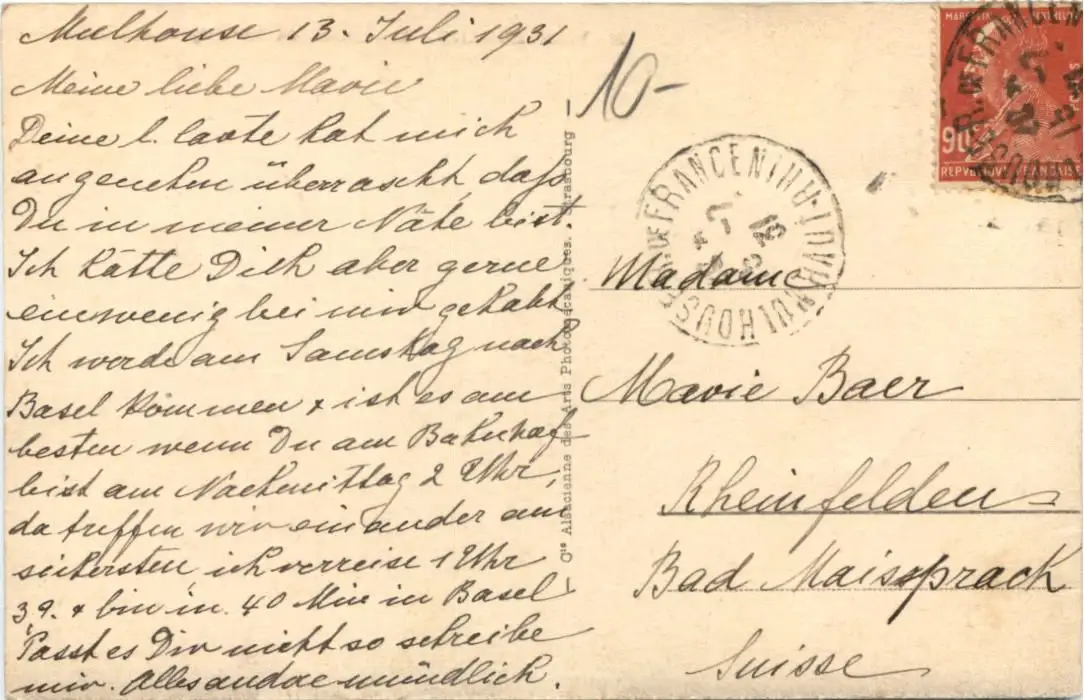 Mulhouse 13. Juli 1931
Meine liebe Marie
Deine l. Carte hat mich
angenehm überrascht, daß
Du in meiner Nähe bist.
Ich hätte Dich aber gerne
ein wenig bei mir gehabt
Ich werde am Samstag nach
Basel kommen & ist es am
besten wenn Du am Bahnhof
bist am Nachmittag 2 Uhr,
da treffen wir einander am
sichersten, ich verreise 1 Uhr
39. & bin in 40 Min in Basel
Passt es Dir nicht so schreibe
mir. Alles andre mündlich.
Cie Alsacienne des Arts Photomécaniques. Strasbourg
10-
MULHOUSE HAUT-RHIN
FRANCE
90c
Madame
Marie Baer
Rheinfelden
Bad Maissprach
Suisse